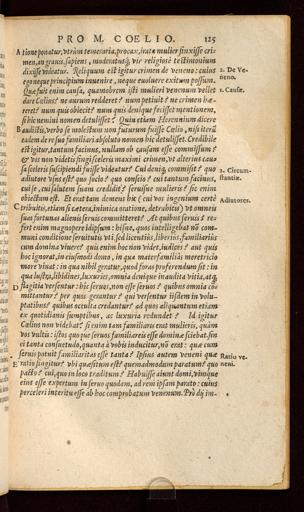 PRO M. COELIO. 125
A tione ponatur, vtrùm temeraria, procax, iratæ mulier finxisse cri-
men, an grauis, sapiens, moderatusq́; vir religiosè testimonium
dixisse videatur. Reliquum est igitur crimen de veneno: cuius
2. De Ve-
neno.
ego neque principium inuenire, neque euoluere exitum possum.
Quæ fuit enim causa, quamobrem isti mulieri venenum vellet
1. Causæ.
dare Cœlius? ne aurum redderet? num petiuit? ne crimen hæ-
reret? num quis obiecit? num quis denique fecisset mentionem,
si hic nemini nomen detulisset? Quin etiam Herennium dicere
B audistis, verbo se molestum non futurum fuisse Cœlio, nisi iterū
eadem de re suo familiari absoluto nomen hic detulisset. Credibile
est igitur, tantum facinus, nullam ob causam esse commissum?
& vos non videtis fingi sceleris maximi crimen, vt alterius cau-
sa sceleris suscipiendi fuisse videatur? Cui denique commisit? quo
2. Circum-
stantiæ.
adiutore vsus est? quo socio? quo conscio? cui tantum facinus,
cui se, cui salutem suam credidit? seruisne mulieris? sic enim
obiectum est. Et erat tam demens hic (cui vos ingenium certè
Adiutores.
C tribuitis, etiam si cætera, inimica oratione, detrahitis) vt omneis
suas fortunas alienis seruis committeret? At quibus seruis? re-
fert enim magnopere idipsum: hisne, quos intelligebat nō com-
muni conditione seruitutis vti, sed licentius, liberius, familiariùs
cum domina viuere? quis enim hoc non videt, iudices? aut quis
hoc ignorat, in eiusmodi domo, in qua mater familiâs meretricio
more viuat: in qua nihil geratur, quod foras proferendum sit: in
qua lustra, libidines, luxuries, omnia denique inaudita vitia, ac
D flagitia versentur: hîc seruos, non esse seruos? quibus omnia cō
mittantur? per quos gerantur? qui versentur iisdem in volu-
ptatibus? quibus occulta credantur? ad quos aliquantum etiam
ex quotidianis sumptibus, ac luxuria redundet? Id igitur
Cœlius non videbat? si enim tam familiaris erat mulieris, quàm
vos vultis: istos quoque seruos familiareis esse dominæ sciebat. sin
ei tanta consuetudo, quanta à vobis inducitur, nō erat: quæ cum
seruis potuit familiaritas esse tanta? Ipsius autem veneni quæ
Ratio ve-
neni.
E ratio fingitur? vbi quæsitum est? quemadmodum paratum? quo
pacto? cui, quo in loco traditum? Habuisse aiunt domi, vimque
eius esse expertum in seruo quodam, ad rem ipsam parato: cuius
perceleri interitu esse ab hoc comprobatum venenum. Prô dij im-